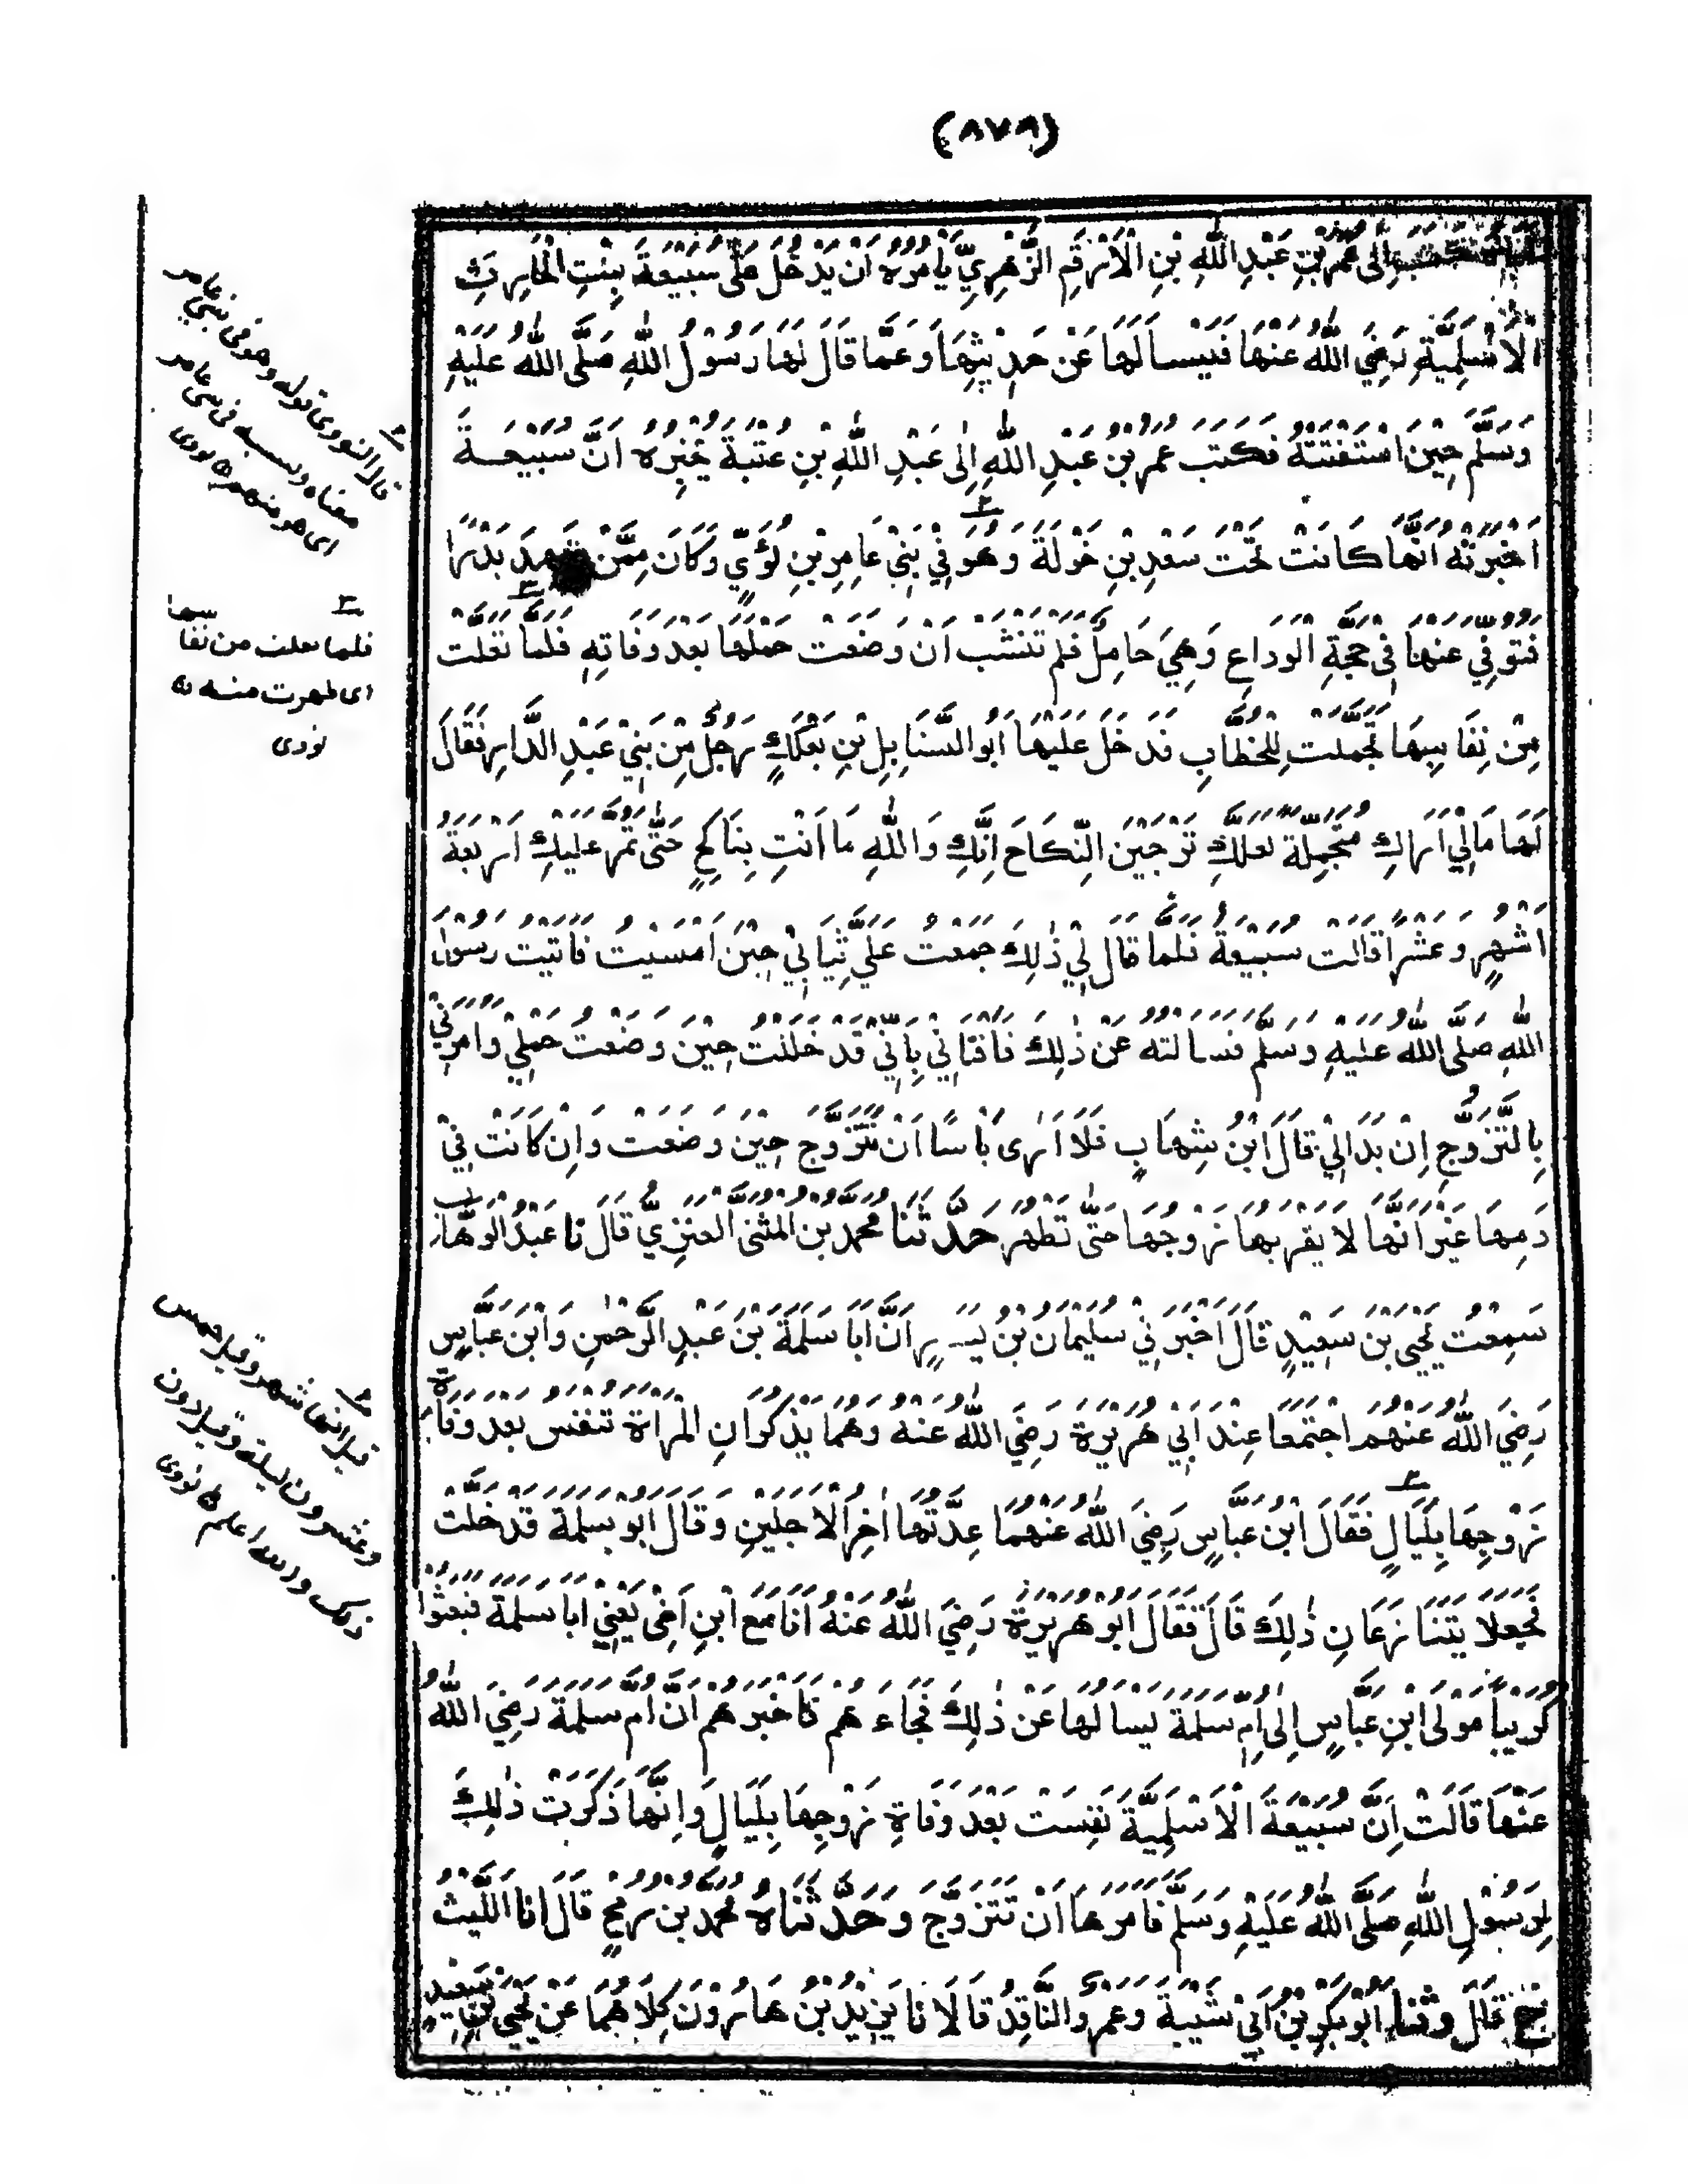 (٨٧٩)
كتب إِلٰى عُمَرَ بْنِ عَبْدِ اللّٰهِ بْنِ الْاَرْقَمِ الزُّهْرِيِّ يَأْمُرُهُ اَنْ يَدْخُلَ عَلٰى سُبَيْعَةَ بِنْتِ الْحَارِثِ
الْاَسْلَمِيَّةِ رَضِيَ اللّٰهُ عَنْهَا فَيَسْاَلَهَا عَنْ حَدِيْثِهَا وَعَمَّا قَالَ لَهَا رَسُوْلُ اللّٰهِ صَلَّى اللّٰهُ عَلَيْهِ
وَسَلَّمَ حِيْنَ اسْتَفْتَتْهُ فَكَتَبَ عُمَرُ بْنُ عَبْدِ اللّٰهِ اِلٰى عَبْدِ اللّٰهِ بْنِ عُتْبَةَ يُخْبِرُهُ اَنَّ سُبَيْعَةَ
اَخْبَرَتْهُ اَنَّهَا كَانَتْ تَحْتَ سَعْدِ بْنِ خَوْلَةَ وَهُوَ فِيْ بَنِيْ عَامِرِ بْنِ لُؤَيٍّ وَكَانَ مِمَّنْ شَهِدَ بَدْرًا
فَتُوُفِّيَ عَنْهَا فِي حَجَّةِ الْوَدَاعِ وَهِيَ حَامِلٌ فَلَمْ تَنْشَبْ اَنْ وَضَعَتْ حَمْلَهَا بَعْدَ وَفَاتِهِ فَلَمَّا تَعَلَّتْ
مِنْ نِفَاسِهَا تَجَمَّلَتْ لِلْخُطَّابِ فَدَخَلَ عَلَيْهَا اَبُو السَّنَابِلِ بْنِ بَعْكَكٍ رَجُلٌ مِّنْ بَنِيْ عَبْدِ الدَّارِ فَقَالَ
لَهَا مَالِيْ اَرَاكِ مُتَجَمِّلَةً لَعَلَّكِ تَرْجِيْنَ النِّكَاحَ اِنَّكِ وَاللّٰهِ مَا اَنْتِ بِنَاكِحٍ حَتّٰى تَمُرَّ عَلَيْكِ اَرْبَعَةُ
اَشْهُرٍ وَعَشْرًا قَالَتْ سُبَيْعَةُ فَلَمَّا قَالَ لِيْ ذٰلِكَ جَمَعْتُ عَلَيَّ ثِيَابِيْ حِيْنَ اَمْسَيْتُ فَاَتَيْتُ رَسُوْلَ
اللّٰهِ صَلَّى اللّٰهُ عَلَيْهِ وَسَلَّمَ فَسَاَلْتُهُ عَنْ ذٰلِكَ فَاَفْتَانِيْ بِاَنِّيْ قَدْ حَلَلْتُ حِيْنَ وَضَعْتُ حَمْلِيْ وَاَمَرَنِيْ
بِالتَّزَوُّجِ اِنْ بَدَا لِيْ قَالَ ابْنُ شِهَابٍ فَلَا اَرٰى بَاْسًا اَنْ تَتَزَوَّجَ حِيْنَ وَضَعَتْ وَاِنْ كَانَتْ فِيْ
دَمِهَا غَيْرَ اَنَّهَا لَا يَقْرَبُهَا زَوْجُهَا حَتّٰى تَطْهُرَ حَدَّثَنَا مُحَمَّدُ بْنُ الْمُثَنَّى الْعَنَزِيُّ قَالَ نَا عَبْدُ الْوَهَّابِ
سَمِعْتُ يَحْيَى بْنَ سَعِيْدٍ قَالَ اَخْبَرَنِيْ سُلَيْمَانُ بْنُ يَسَارٍ اَنَّ اَبَا سَلَمَةَ بْنَ عَبْدِ الرَّحْمٰنِ وَابْنَ عَبَّاسٍ
رَضِيَ اللّٰهُ عَنْهُمْ اجْتَمَعَا عِنْدَ اَبِيْ هُرَيْرَةَ رَضِيَ اللّٰهُ عَنْهُ وَهُمَا يَذْكُرَانِ الْمَرْاَةَ تُنْفَسُ بَعْدَ وَفَاةِ
زَوْجِهَا بِلَيَالٍ فَقَالَ ابْنُ عَبَّاسٍ رَضِيَ اللّٰهُ عَنْهُمَا عِدَّتُهَا اٰخِرُ الْاَجَلَيْنِ وَقَالَ اَبُوْ سَلَمَةَ قَدْ حَلَّتْ
فَجَعَلَا يَتَنَازَعَانِ ذٰلِكَ قَالَ فَقَالَ اَبُوْ هُرَيْرَةَ رَضِيَ اللّٰهُ عَنْهُ اَنَا مَعَ ابْنِ اَخِيْ يَعْنِيْ اَبَا سَلَمَةَ فَبَعَثُوْا
كُرَيْبًا مَوْلَى ابْنِ عَبَّاسٍ اِلٰى اُمِّ سَلَمَةَ يَسْاَلُهَا عَنْ ذٰلِكَ فَجَاءَهُمْ فَاَخْبَرَهُمْ اَنَّ اُمَّ سَلَمَةَ رَضِيَ اللّٰهُ
عَنْهَا قَالَتْ اِنَّ سُبَيْعَةَ الْاَسْلَمِيَّةَ نُفِسَتْ بَعْدَ وَفَاةِ زَوْجِهَا بِلَيَالٍ وَاِنَّهَا ذَكَرَتْ ذٰلِكَ
لِرَسُوْلِ اللّٰهِ صَلَّى اللّٰهُ عَلَيْهِ وَسَلَّمَ فَاَمَرَهَا اَنْ تَتَزَوَّجَ وَحَدَّثَنَاهُ مُحَمَّدُ بْنُ رُمْحٍ قَالَ اَنَا اللَّيْثُ
ح قَالَ وَثَنَا اَبُوْ بَكْرِ بْنُ اَبِيْ شَيْبَةَ وَعَمْرٌو النَّاقِدُ قَالَا نَا يَزِيْدُ بْنُ هَارُوْنَ كِلَاهُمَا عَنْ يَحْيَى بْنِ سَعِيْدٍ
قال النووى قوله وهو فى بنى عامر
معناه ونسبه فى بنى عامر
اى هو منهم نووى
٣
فلما تعلت من نفاسها
اى طهرت منه
نووى
قيل انها شهر وقيل خمس
وعشرون ليلة وقيل دون
ذلك والله اعلم نووى